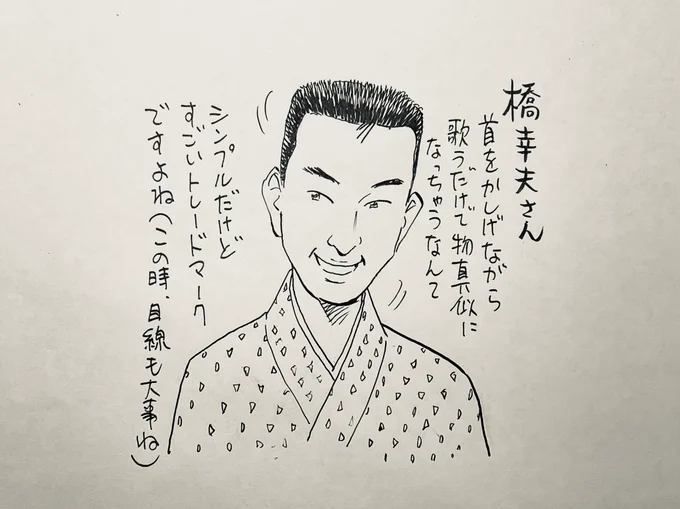 橋幸夫さん
首をかしげながら
歌うだけで物真似に
なっちゃうなんて
シンプルだけど
すごいトレードマーク
ですよね(この時、目線も大事ね)